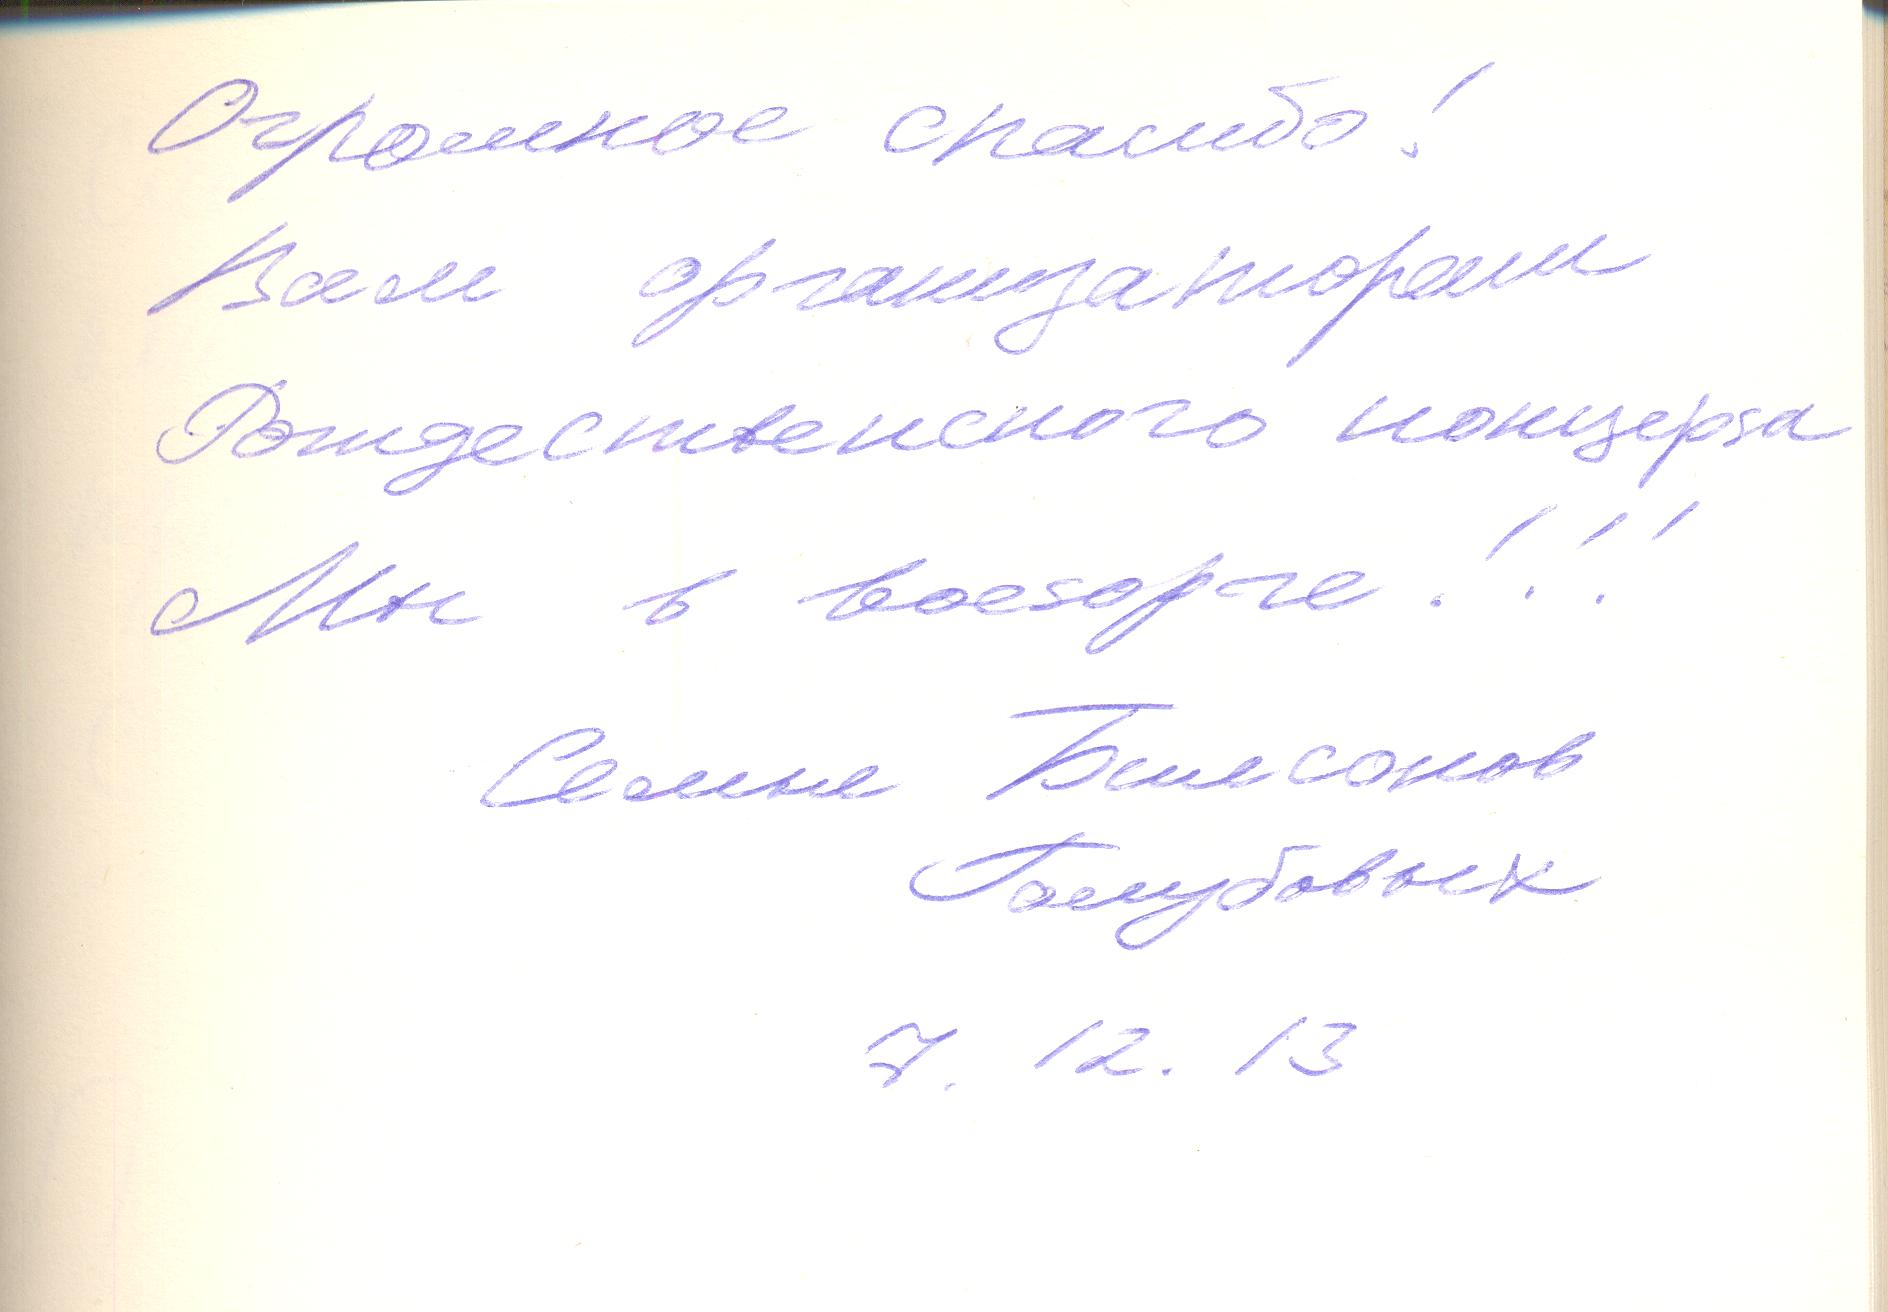 Огромное спасибо!
Вам организаторам
Рождественского концерта
Мы в восторге!!!
Семьи
Голубовых
7. 12. 13